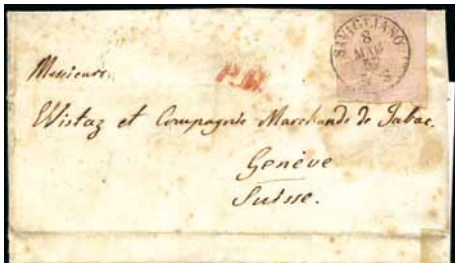 SAVIGLIANO
8
MAG
P.D.
Messieurs
Wistaz et Compagnie Marchands de Tabac.
Genève
Suisse.